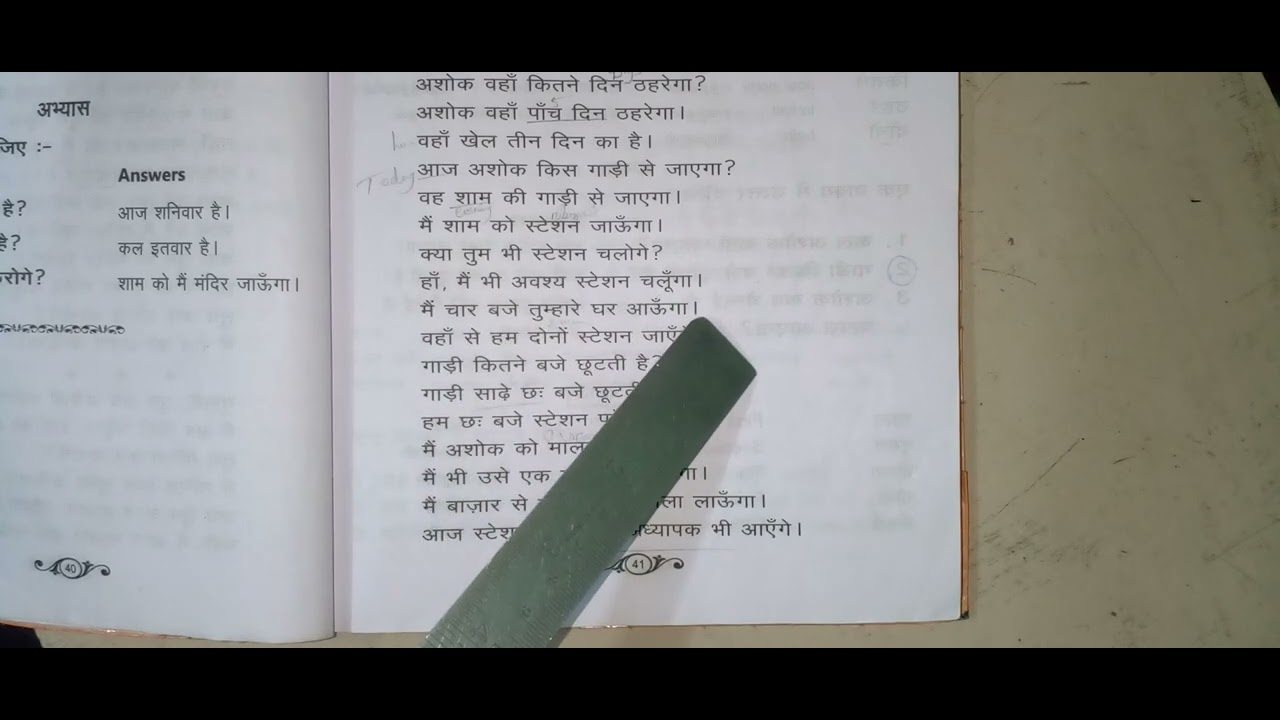 अभ्यास
जिए :-
Answers
है?
आज शनिवार है।
है?
कल इतवार है।
रोगे?
शाम को मैं मंदिर जाऊँगा।
40
अशोक वहाँ कितने दिन ठहरेगा?
अशोक वहाँ पाँच दिन ठहरेगा।
वहाँ खेल तीन दिन का है।
Today आज अशोक किस गाड़ी से जाएगा?
वह शाम की गाड़ी से जाएगा।
मैं शाम को स्टेशन जाऊँगा।
क्या तुम भी स्टेशन चलोगे?
हाँ, मैं भी अवश्य स्टेशन चलूँगा।
मैं चार बजे तुम्हारे घर आऊँगा।
वहाँ से हम दोनों स्टेशन
गाड़ी कितने बजे छूटती है?
गाड़ी साढ़े छः बजे
हम छः बजे स्टेशन
मैं अशोक को
मैं भी उसे एक गा।
मैं बाज़ार से लाऊँगा।
आज भी आएँगे।
41